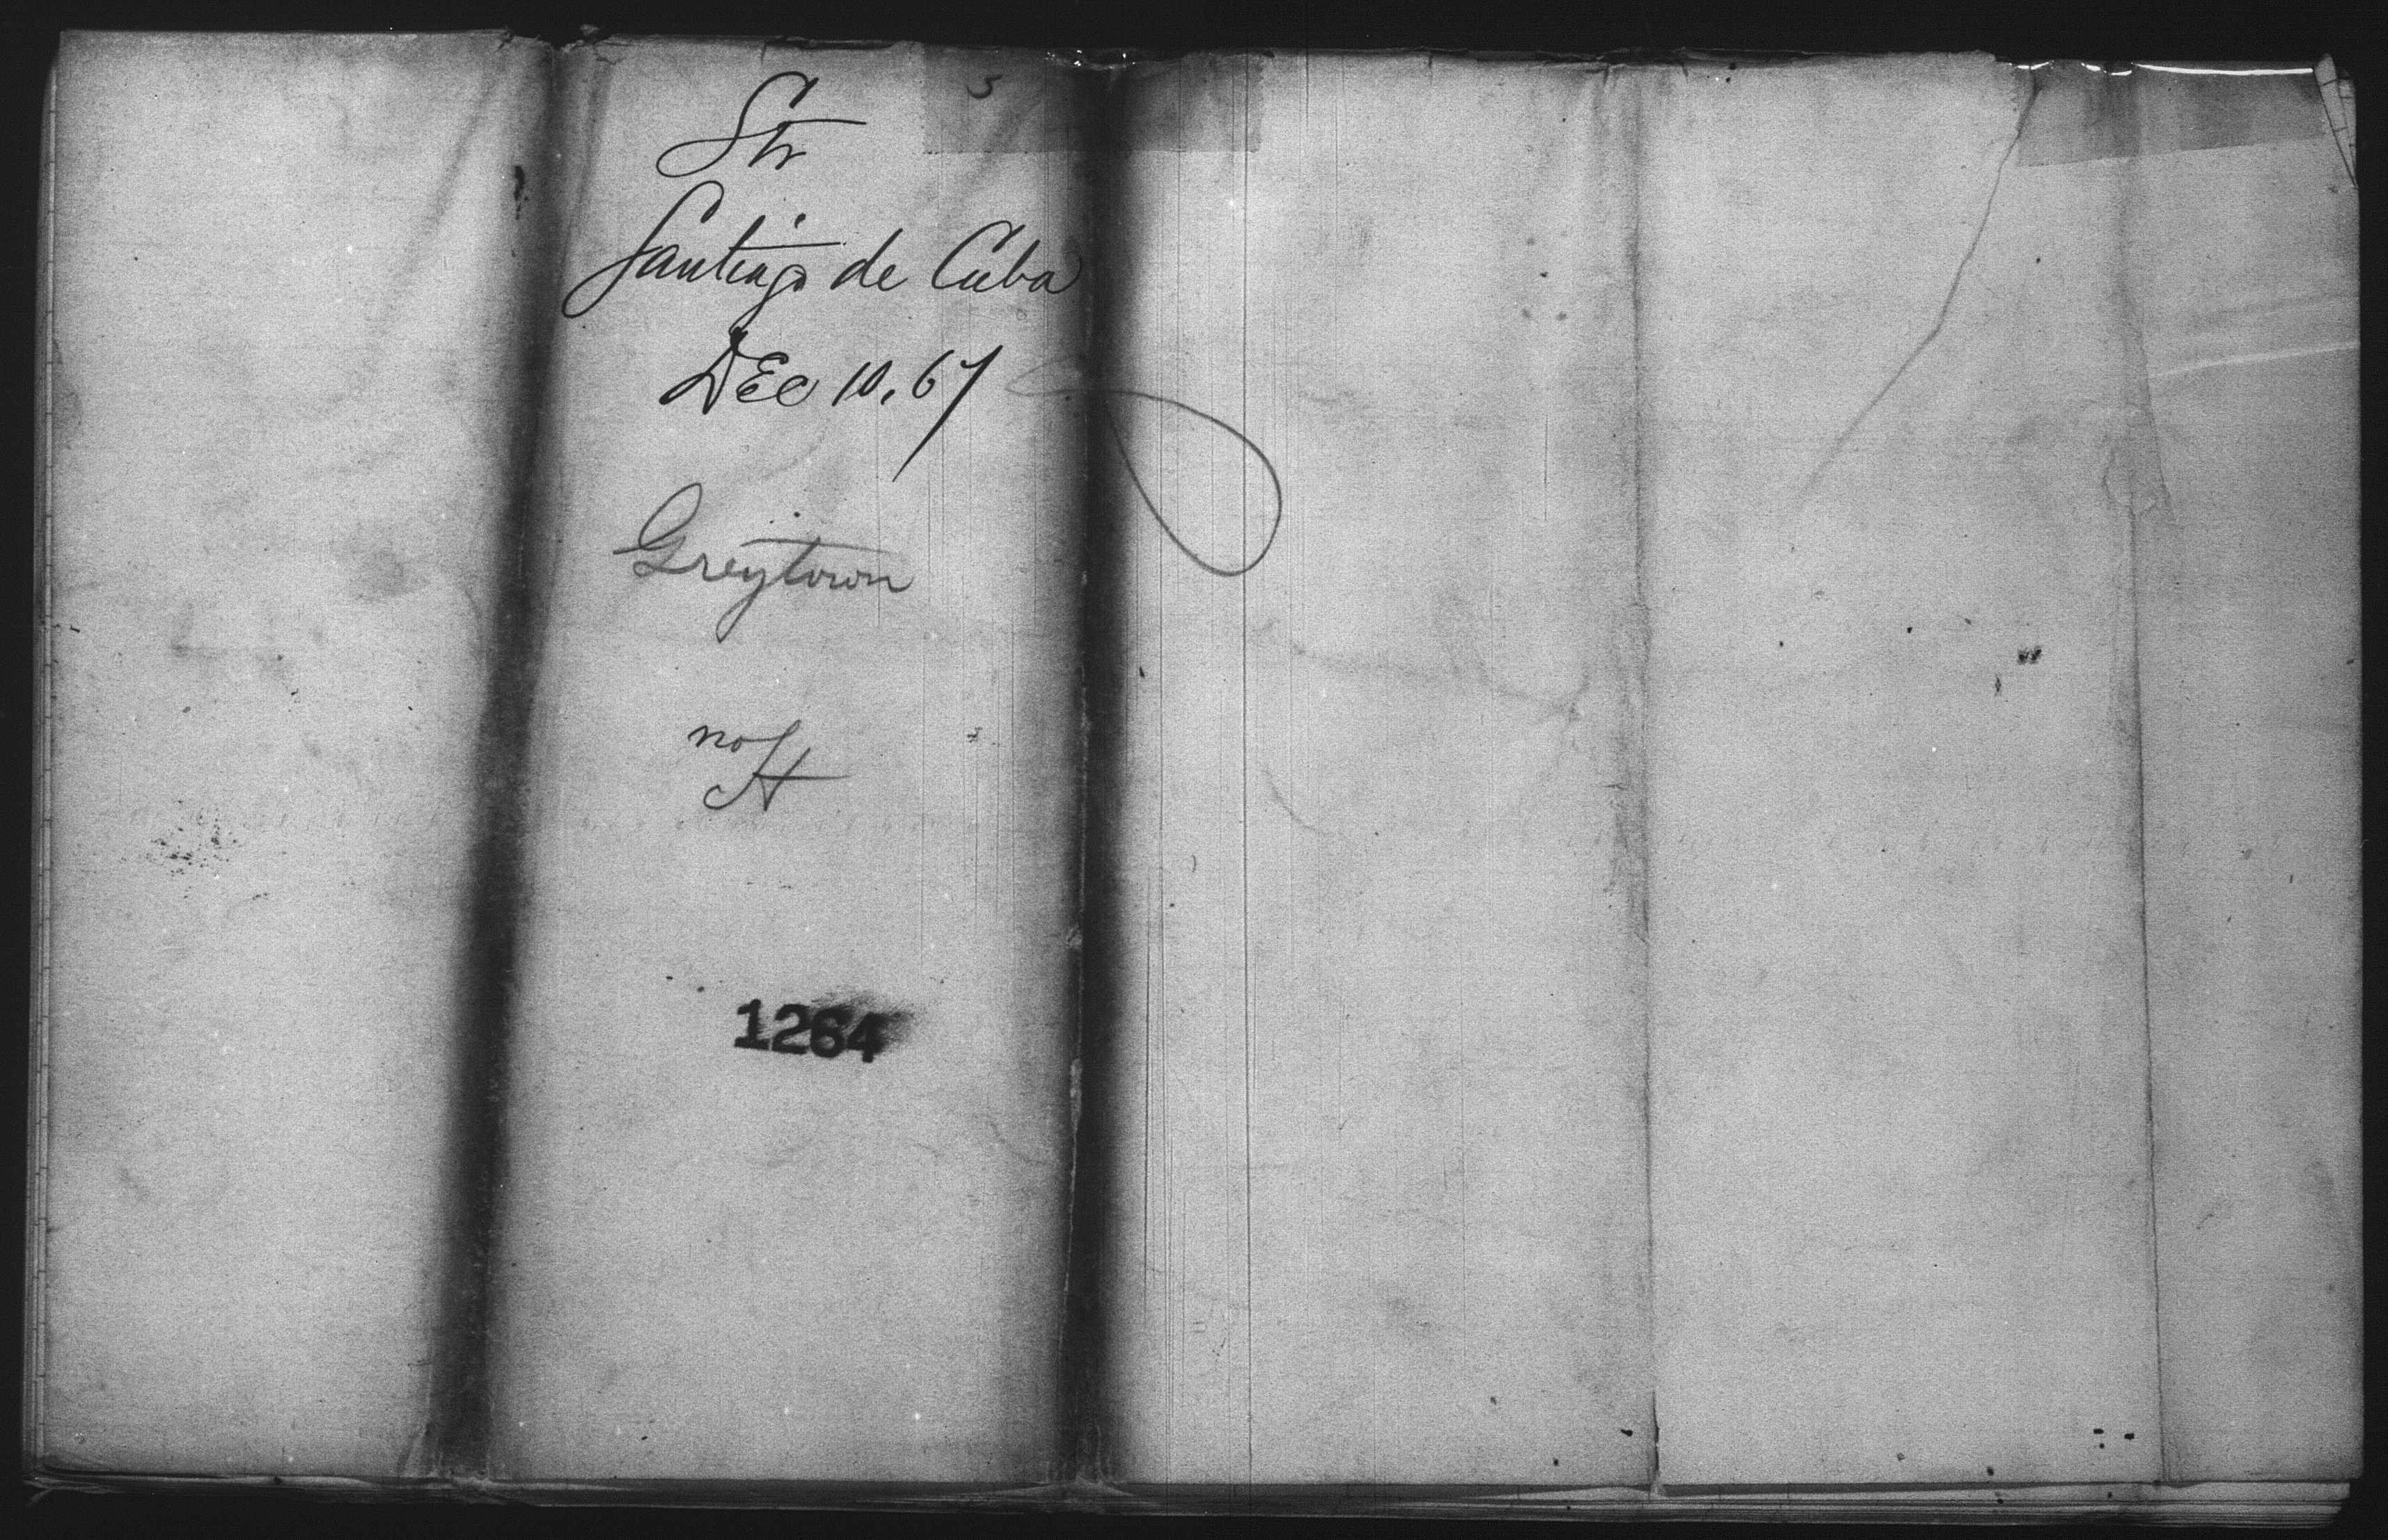 Str
Santiago de Cuba
DEc 10. 67
Greytown
no
H
1264